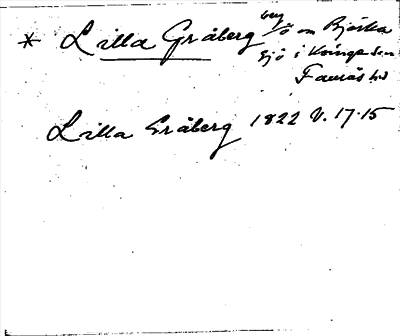 * Lilla Gråberg berg ö om Björka
sjö i Kvinge sn
Fauräs hd
Lilla Gråberg 1822 V. 17.15